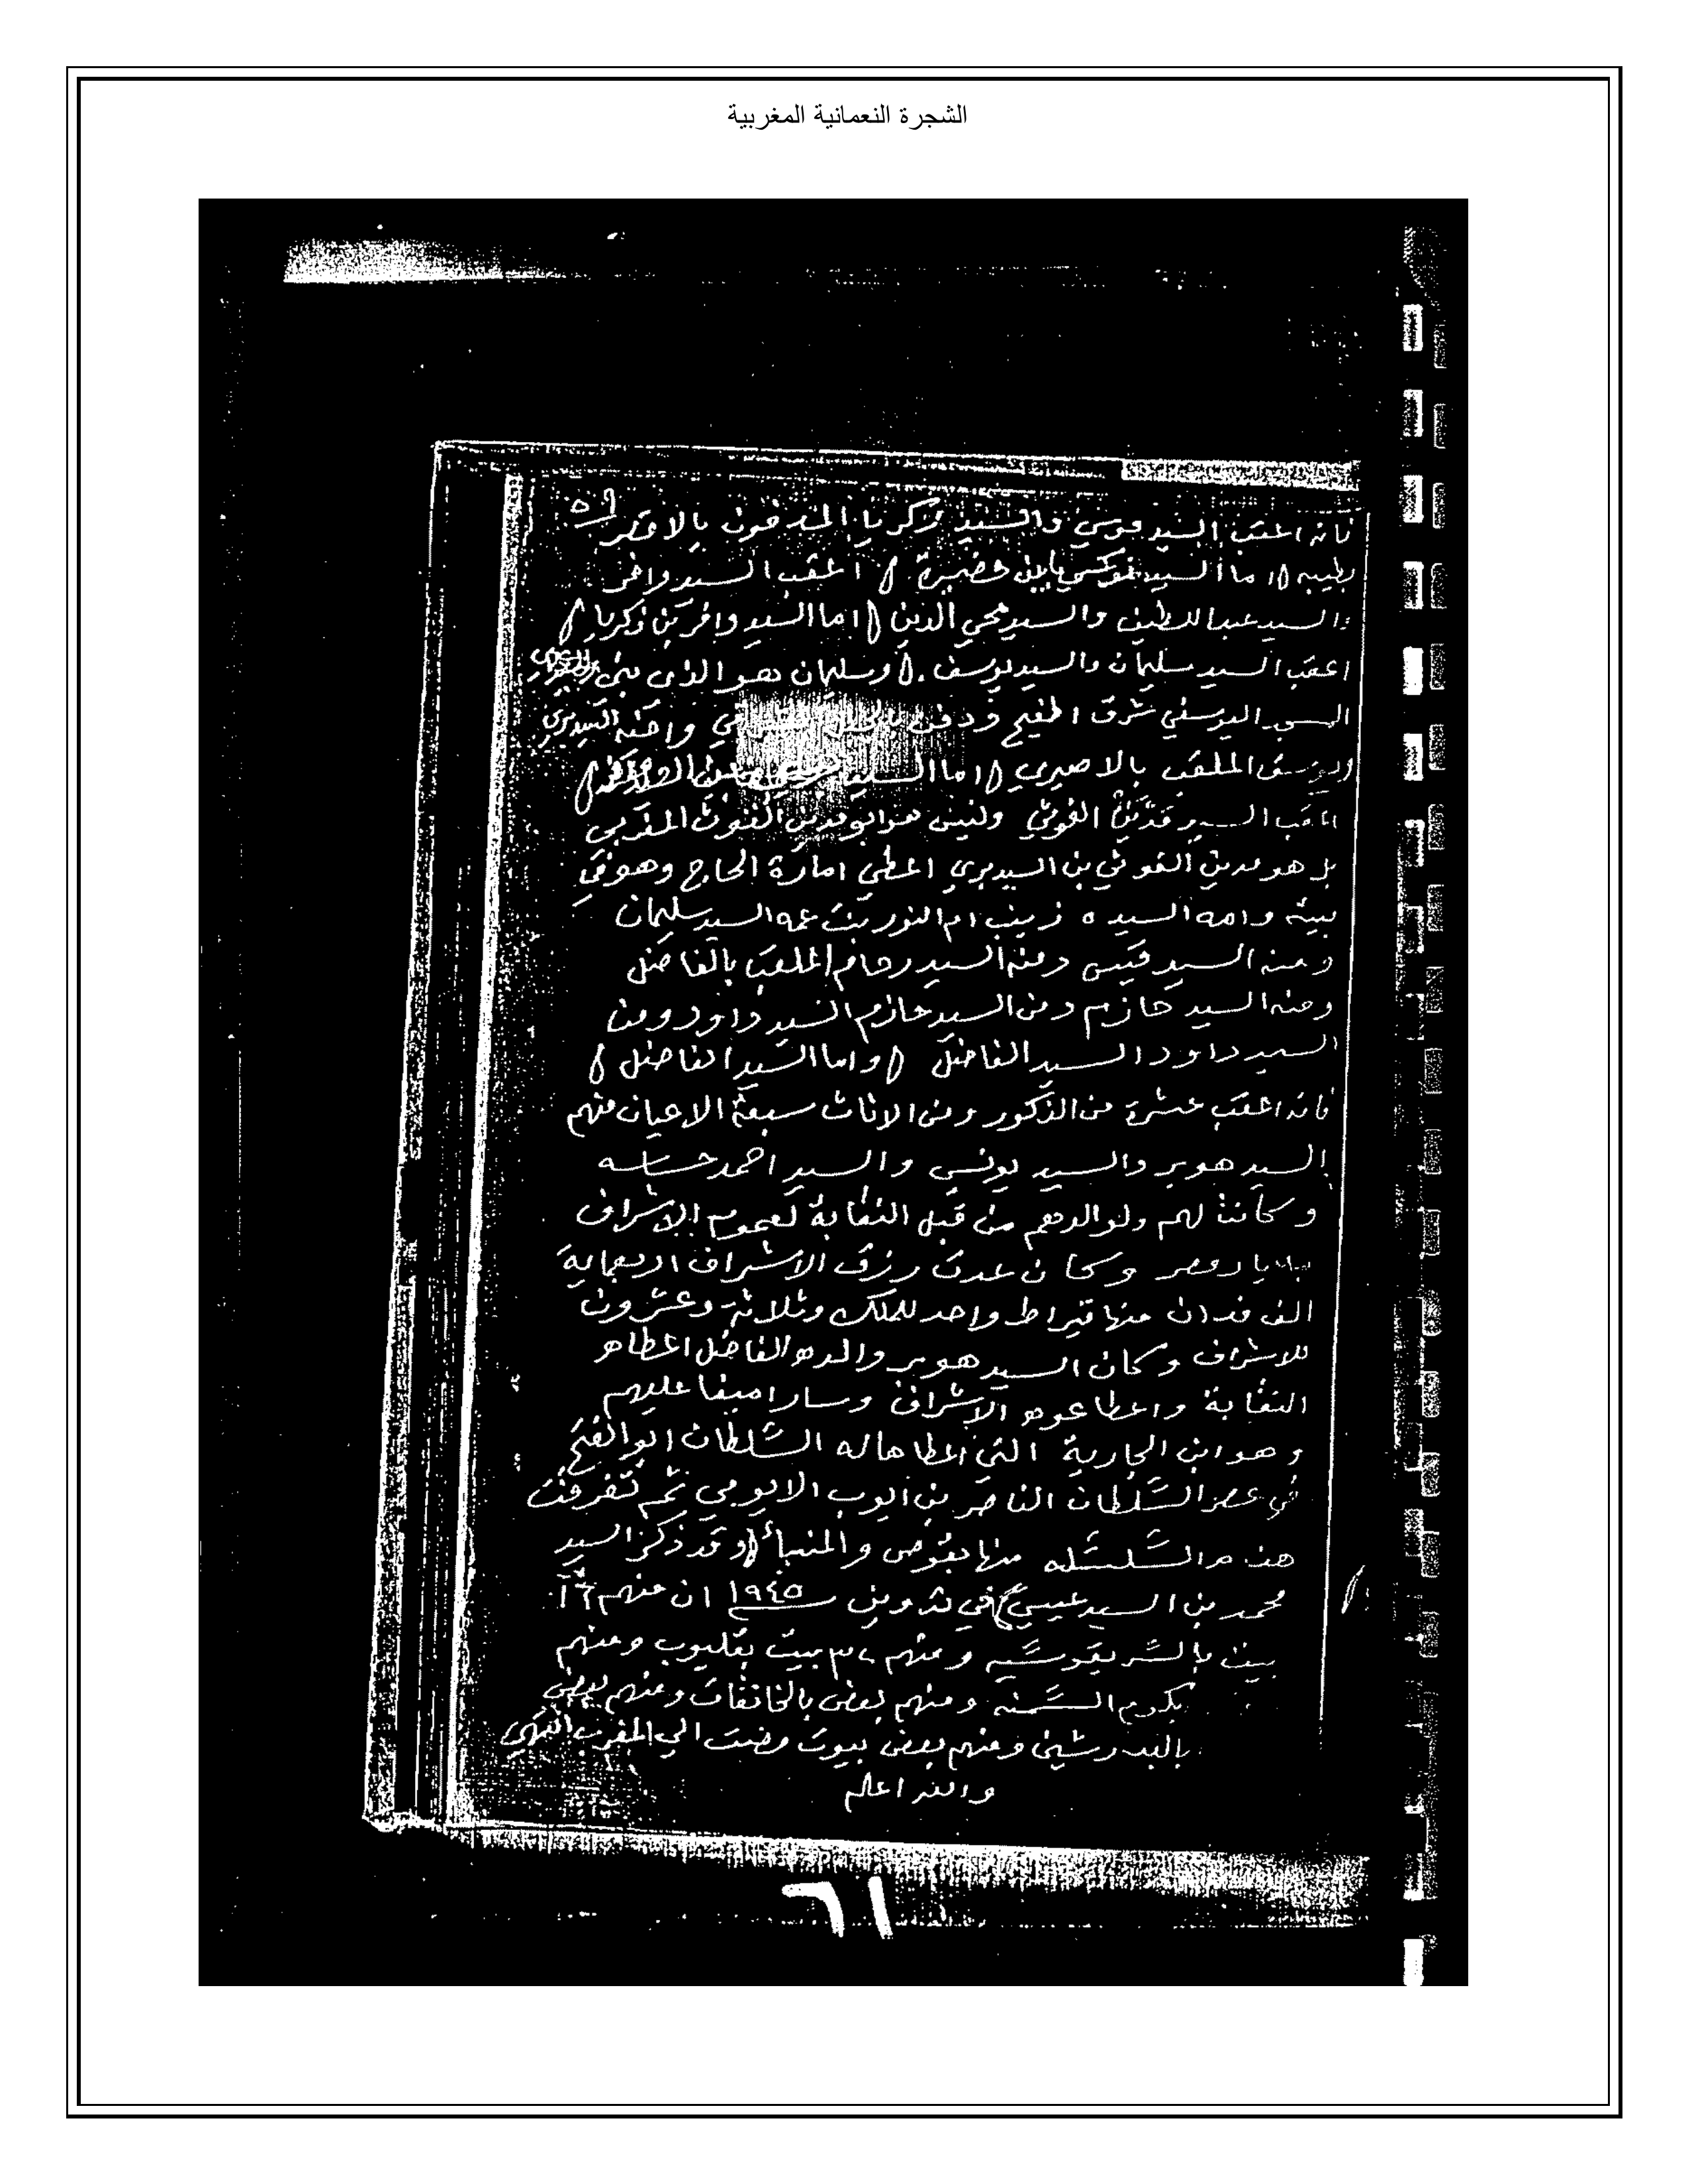 الشجرة النعمانية المغربية
فانه اعقب السيد موسي والسيد زكريا المدفون بالاقصر
بطيبه اما السيد اعقب السيد وافر
والسيد عبد اللطيف والسيد محي الدين اما السيد وافر بن زكريا
اعقب السيد سليمان والسيد يوسف وسليمان هو الذي بني
اليوسفي شرق
يوسف الملقب بالاصيري اما السيد
اعقب السيد مدين الغوثي وليس هو ابو مدين الغوث المغربي
بل هو مدين الغوثي بن السيد بري اعطي امارة الحاج وهو في
بيته وامه السيده زينب ام النور بنت عمه السيد سليمان
ومنه السيد قيس ومنه السيد الملقب بالفاضل
ومنه السيد حازم ومن السيد حازم السيد داود ومن
السيد داود السيد الفاضل واما السيد الفاضل
فانه اعقب عشرة من الذكور ومن الاناث سبعة الاعيان منهم
السيد هوير والسيد يونس والسيد احمد
وكانت لهم ولوالدهم من قبل النقابة لعموم الاشراف
مصر وكان عدت رزق الاشراف اربعماية
الف فدان منها قيراط واحد للملك وثلاثة وعشرون
للاشراف وكان السيد هوير والده الفاضل اعطاه
النقابة واعطاعوه الاشراف وسار عليهم
وهو ابن الجارية التي اعطاها له السلطان ابو الفتح
في عصر السلطان الناصر بن ايوب الايوبي ثم تفرقت
هذه السلسله منها بقوص والمنيا وقد ذكر السيد
محمد بن السيد عيسي في تدوين سنة ١٩٤٥ ان منهم
بيت ومنهم بيت بقليوب ومنهم
ومنهم بعض بالخانقات ومنهم بعض
بالبدرشين ومنهم بعض بيوت مضت الي المغرب انتهي
والله اعلم
٦١